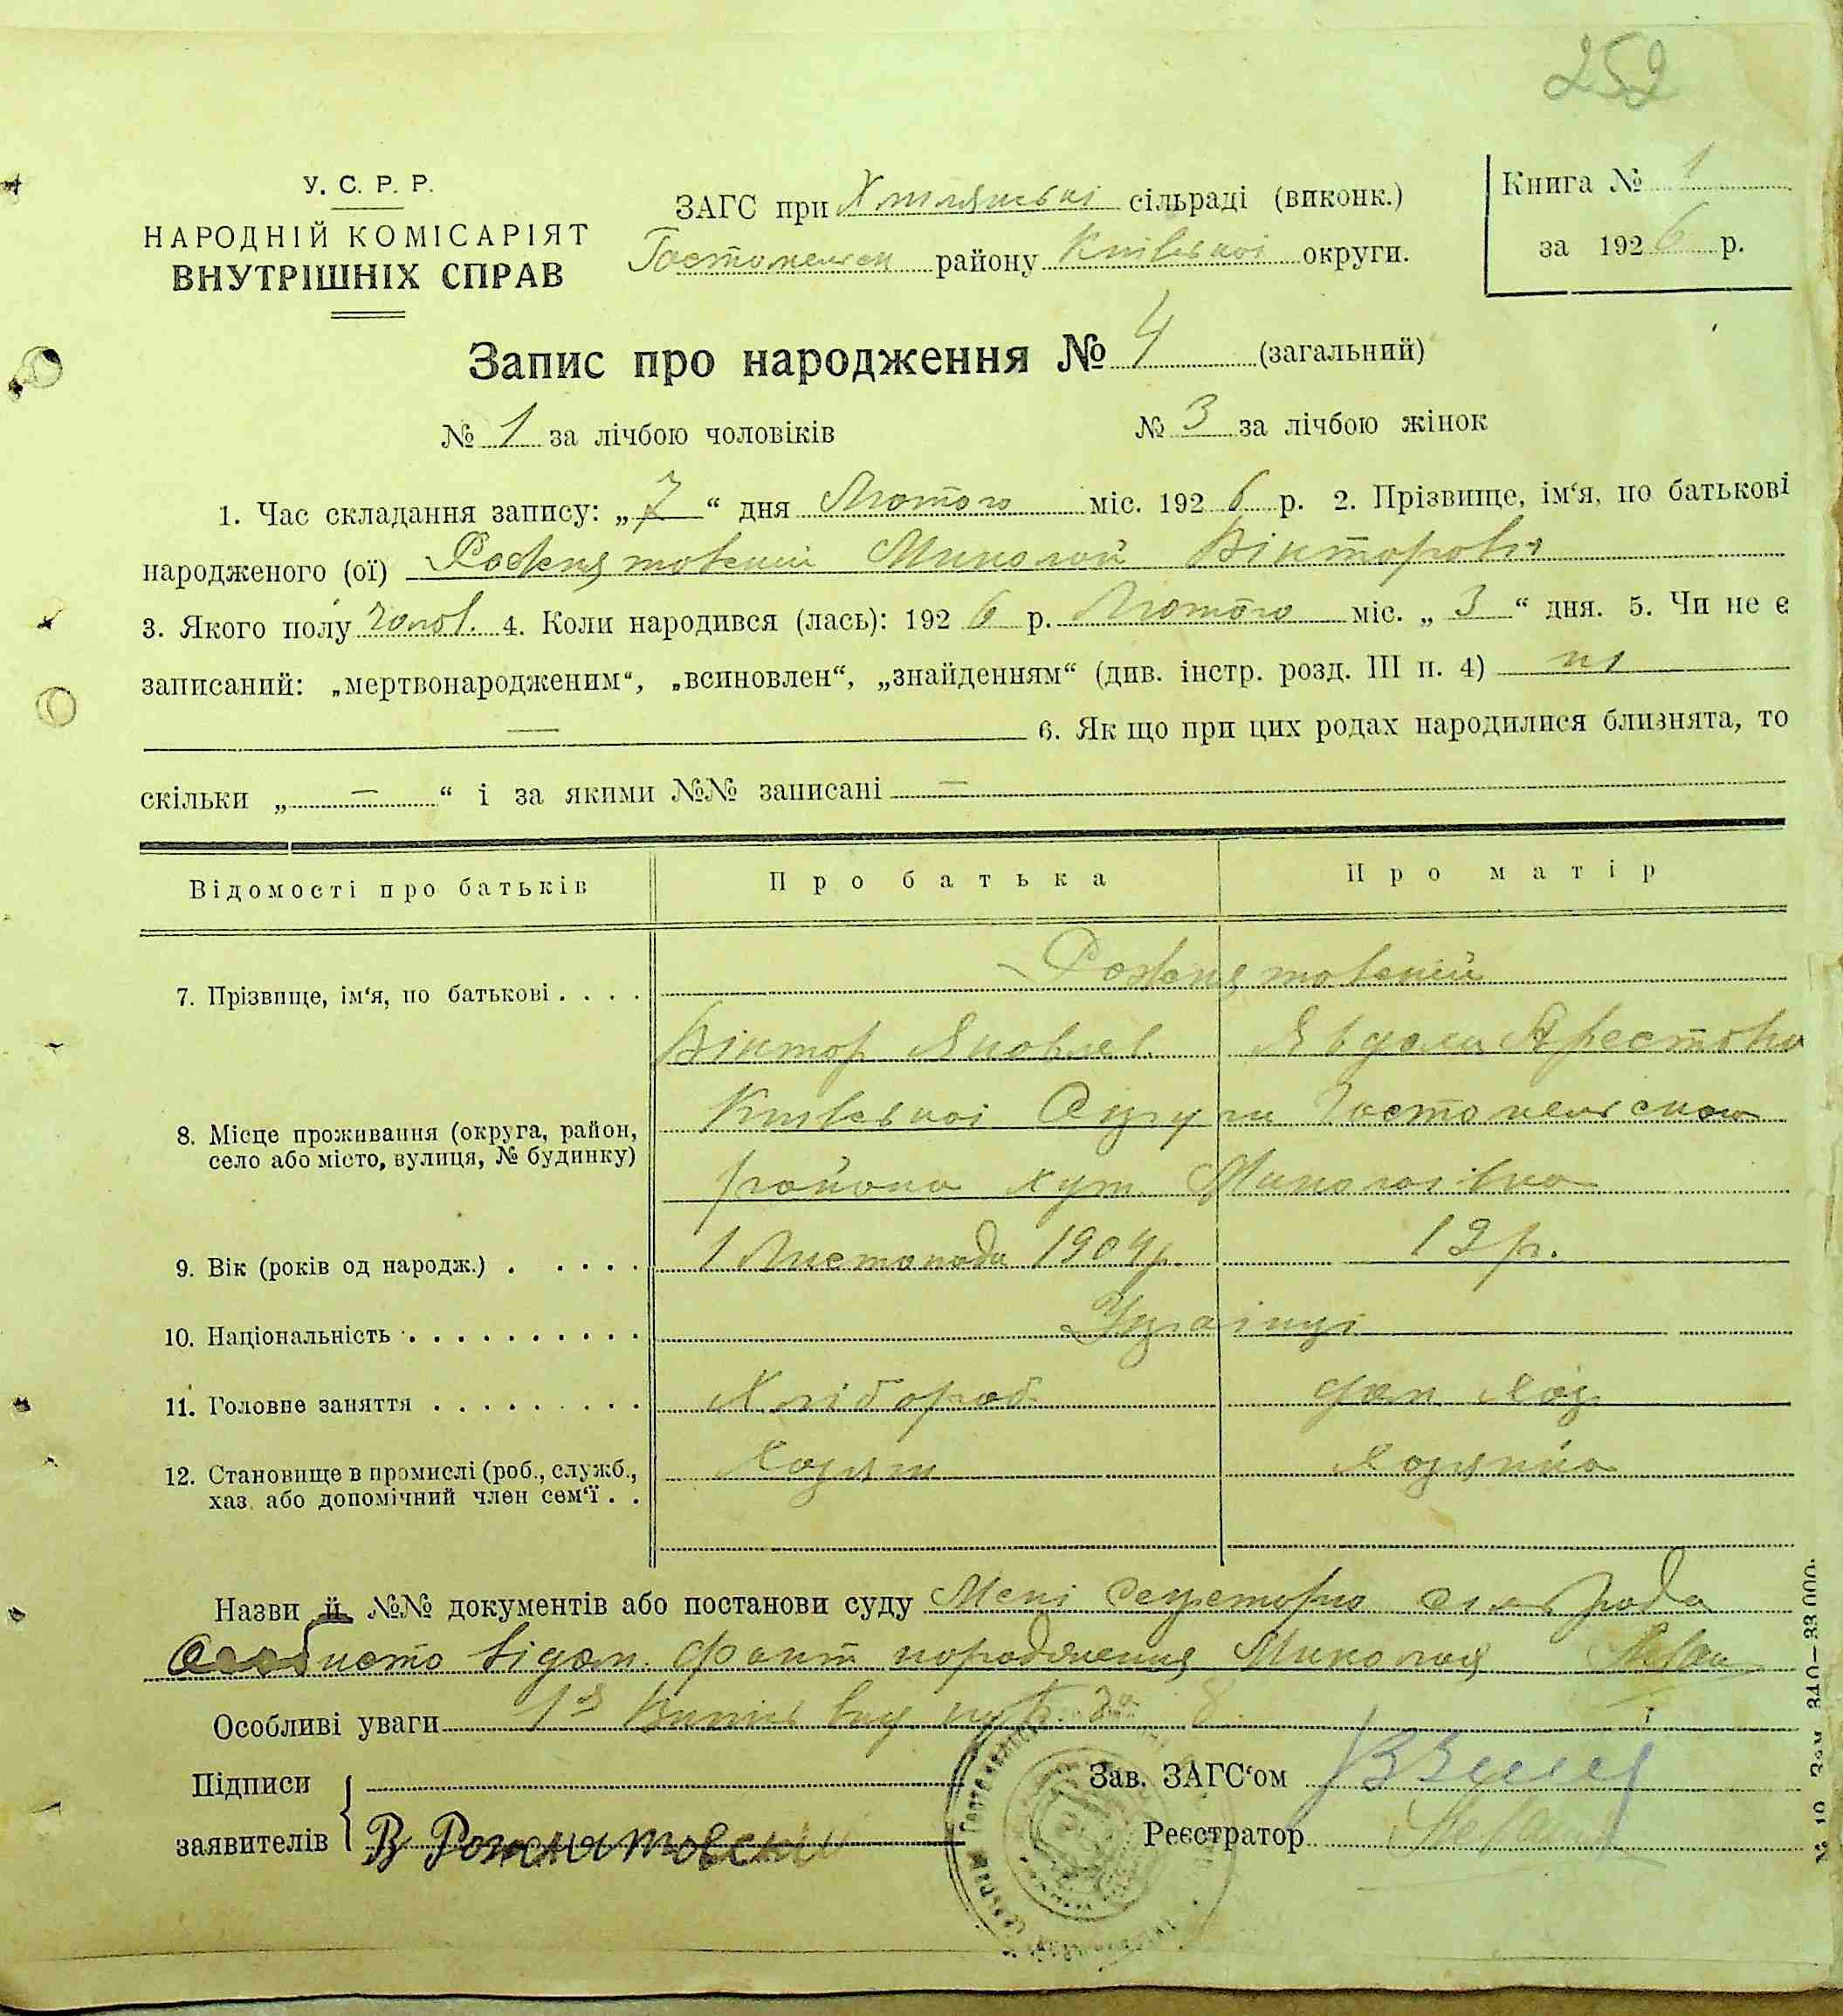 252
У. С. Р. Р.
НАРОДНІЙ КОМІСАРІЯТ
ВНУТРІШНІХ СПРАВ
ЗАГС при сільраді (виконк.)
Гостомельск району Київської округи.
Книга № 1
за 1926 р.
Запис про народження № 4 (загальний)
№ 1 за лічбою чоловіків № 3 за лічбою жінок
1. Час складання запису: „7“ дня Лютого міс. 1926 р. 2. Прізвище, ім‘я, по батькові
народженого (ої) Рожнятовский Миколай Вікторовіч
3. Якого полу чолов. 4. Коли народився (лась): 1926 р. Лютого міс. „3“ дня. 5. Чи не є
записаний: „мертвонародженим“, „всиновлен“, „знайденням“ (див. інстр. розд. III п. 4) ні
— 6. Як що при цих родах народилися близнята, то
скільки „—“ і за якими №№ записані —
Відомості про батьків Про батька Про матір
7. Прізвище, ім‘я, по батькові . . . . Рожнятовский
Віктор Яковлев
8. Місце проживання (округа, район,
село або місто, вулиця, № будинку)
Київської Округи Гостомельского
района хут. Миколаївка
9. Вік (років од народж.) . . . . . 1 Листопада 1904 р. 19 р.
10. Національність . . . . . . . . . . Українці
11. Головне заняття . . . . . . . . . Хлібороб
12. Становище в промислі (роб., служб.,
хаз. або допомічний член сем‘ї . .
Хозяин Хозяйка
Назви й №№ документів або постанови суду Мені Секретарю сільрада
Особисто відом. факт народження Миколая
Особливі уваги
Підписи
заявителів В Рожнятовский
Зав. ЗАГС‘ом
Реєстратор